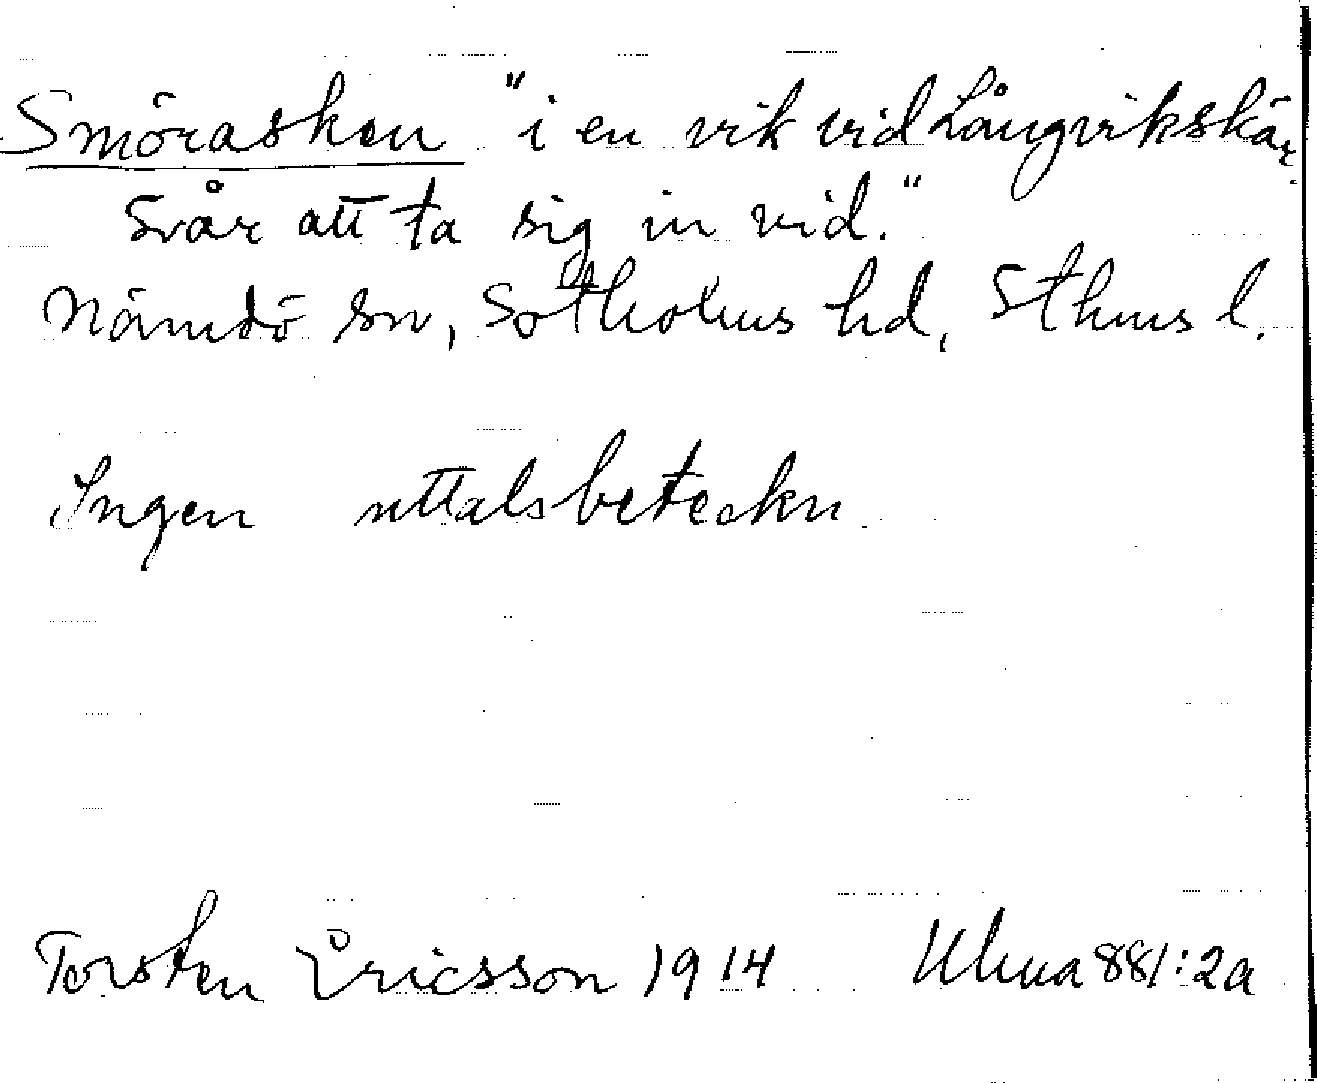 Smörasken "i en vik vid Långvikskär.
Svår att ta sig in vid."
Nämdö sn, Sotholms hd, Sthms l.
Ingen uttalsbeteckn.
Torsten Ericsson 1914 Ulma 881:2a